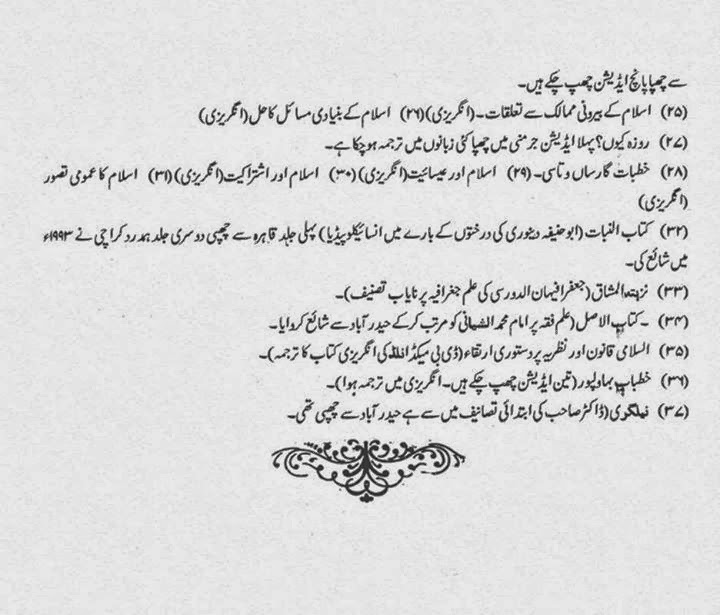 سے چھپا پانچ ایڈیشن چھپ چکے ہیں۔
(۲۵) اسلام کے بیرونی ممالک سے تعلقات۔ (انگریزی) (۲۶) اسلام کے بنیادی مسائل کا حل (انگریزی)
(۲۷) روزہ کیوں؟ پہلا ایڈیشن جرمنی میں چھپا کئی زبانوں میں ترجمہ ہو چکا ہے۔
(۲۸) خطبات گارساں دتاسی۔ (۲۹) اسلام اور عیسائیت (انگریزی) (۳۰) اسلام اور اشتراکیت (انگریزی) (۳۱) اسلام کا عمومی تصور
(انگریزی)
(۳۲) کتاب النبات (ابو حنیفہ دینوری کی درختوں کے بارے میں انسائیکلوپیڈیا) پہلی جلد قاہرہ سے چھپی دوسری جلد ہمدرد کراچی نے ۱۹۹۳ء
میں شائع کی۔
(۳۳) نزہتہ المشاق (جعفر افیہان الدورسی کی علم جغرافیہ پر نایاب تصنیف)۔
(۳۴) ۔ کتاب الاصل (علم فقہ پر امام محمد الشیبانی کو مرتب کر کے حیدر آباد سے شائع کروایا۔
(۳۵) السلامی قانون اور نظریہ پر دستوری ارتقاء (ڈی بی میکڈانلڈ کی انگریزی کتاب کا ترجمہ)۔
(۳۶) خطبات بہاولپور (تین ایڈیشن چھپ چکے ہیں۔ انگریزی میں ترجمہ ہوا)۔
(۳۷) نیلگری (ڈاکٹر صاحب کی ابتدائی تصانیف میں سے ہے حیدر آباد سے چھپی تھی۔